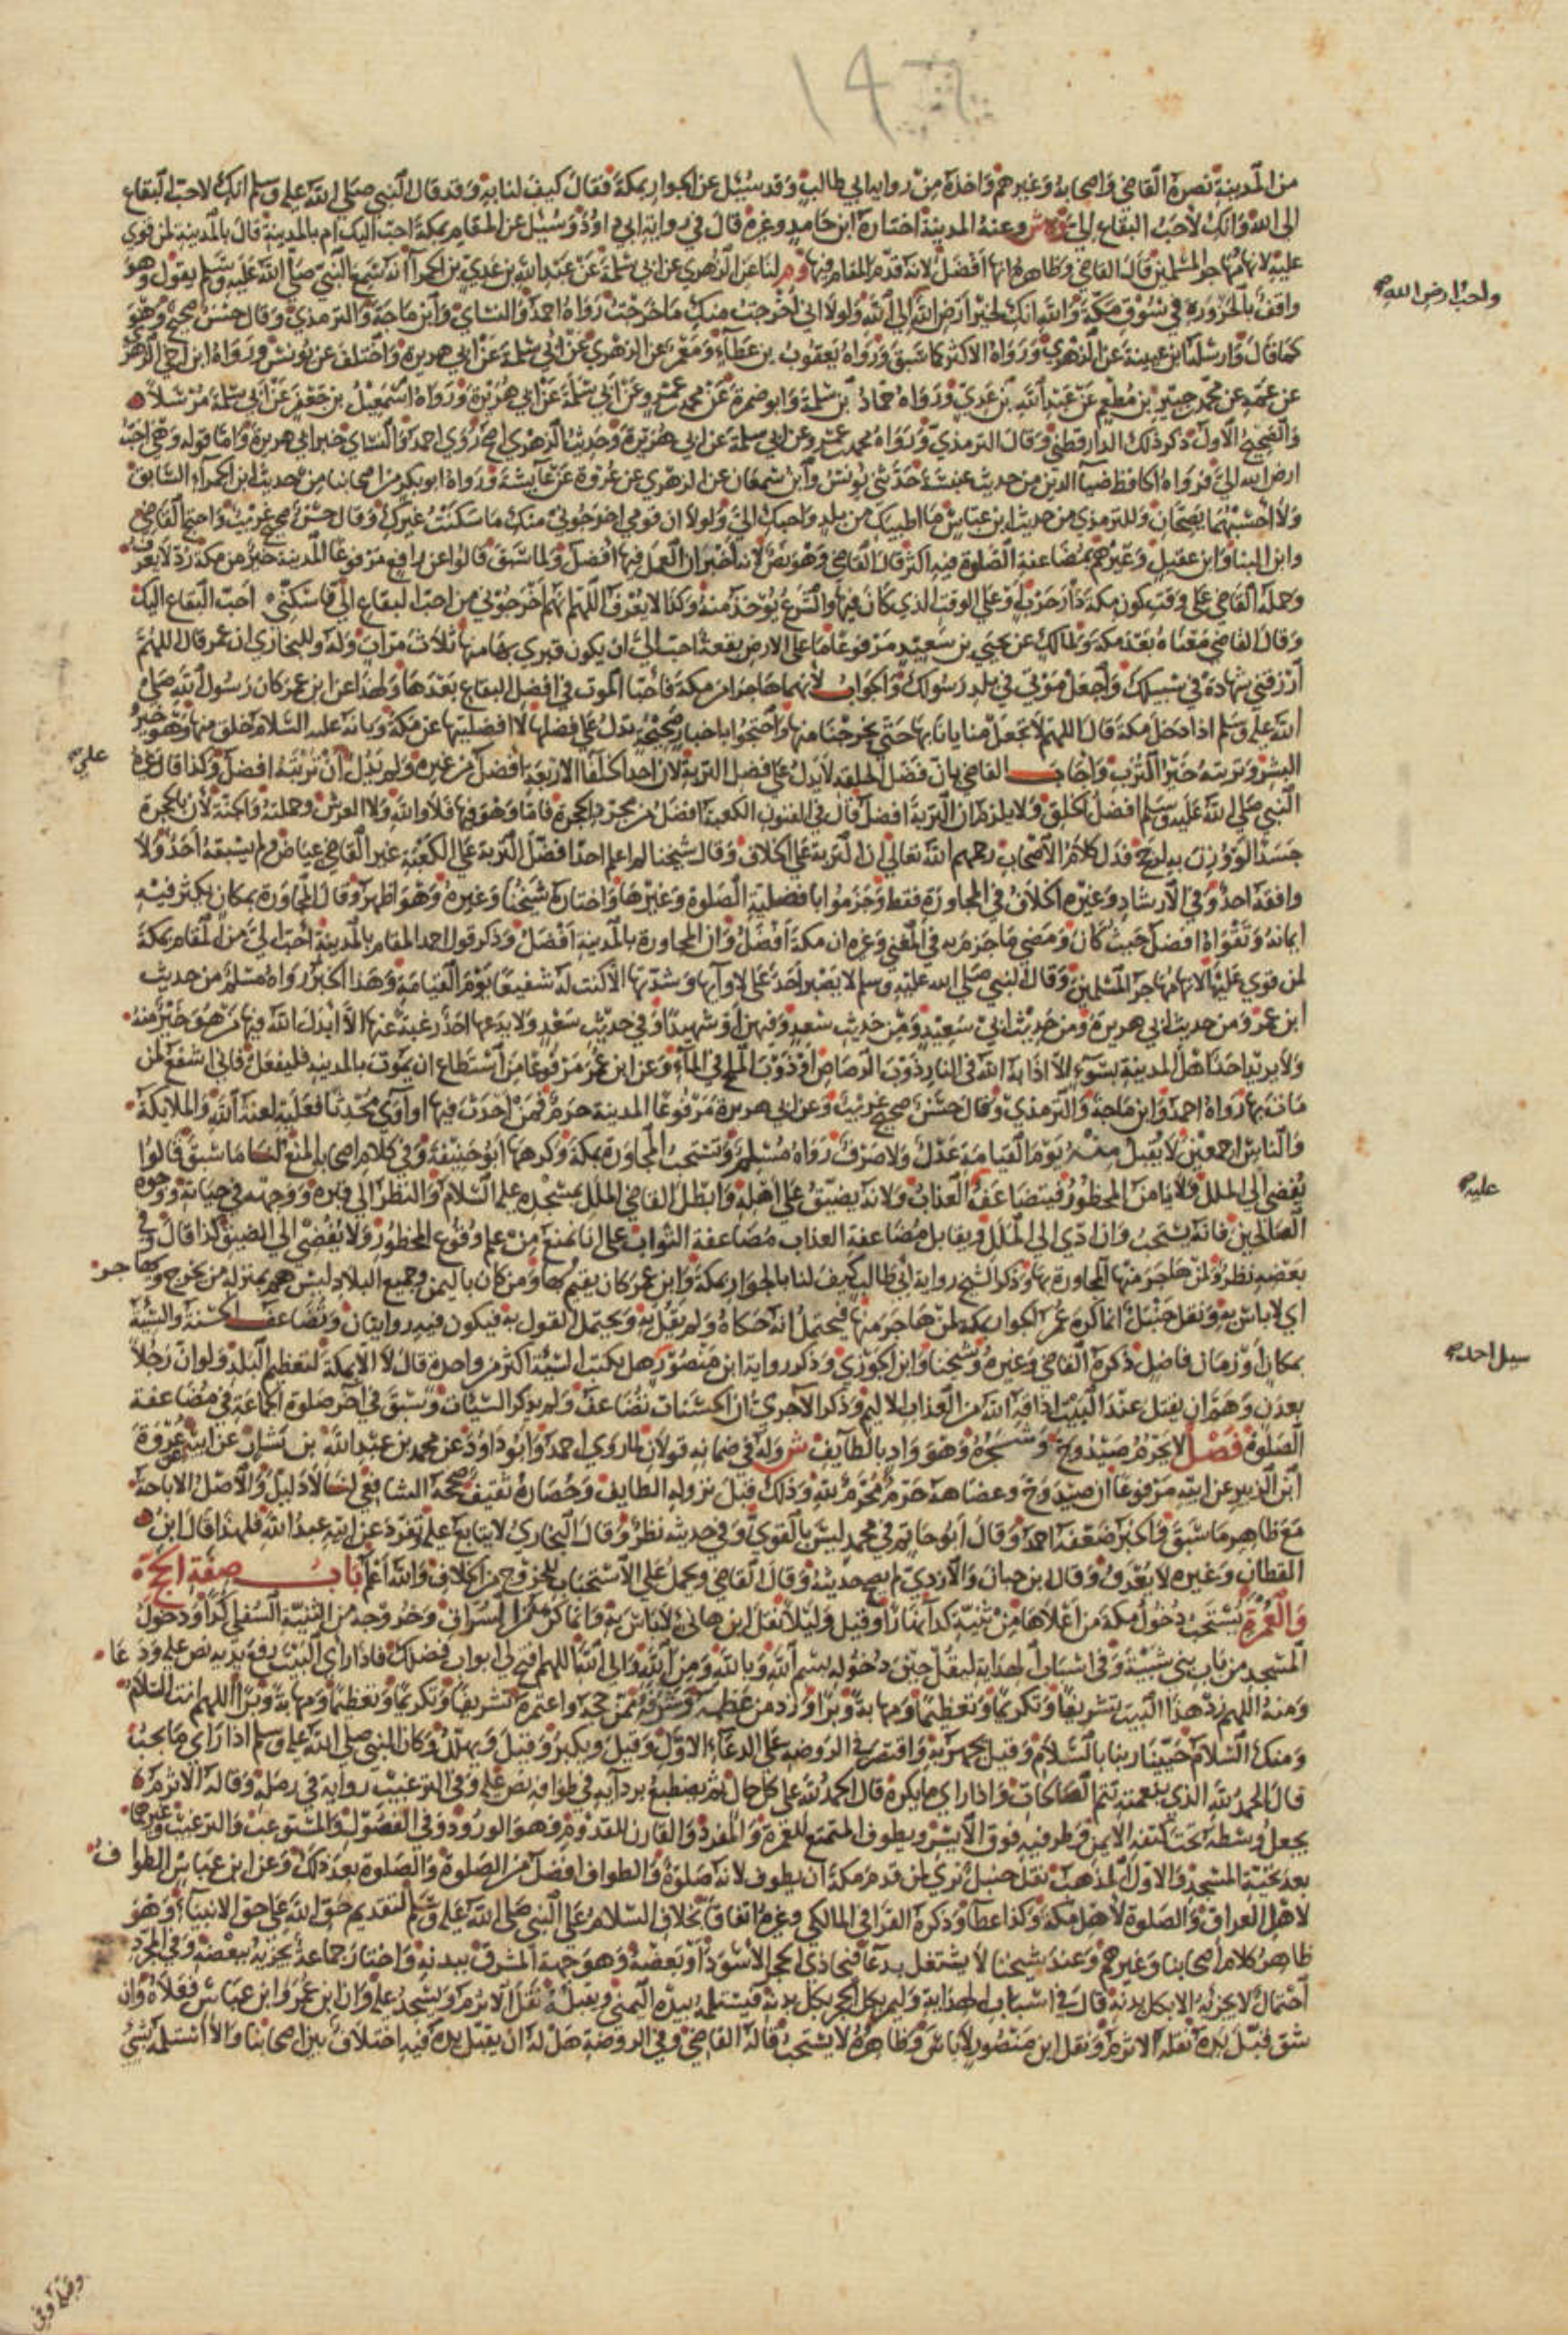 ١٤٠
من المدينة نصره القاضي واصحابه وغيرهم واخذه من رواية ابي طالب وقد سئل عن الجوار بمكة فقال كيف لنا به وقد قال النبي صلى الله عليه وسلم انك لاحب البقاع
الى الله وانك لاحب البقاع الي وعنه المدينة اختاره ابن حامد وغيره قال في رواية ابي داود وسئل عن المقام بمكة احب اليك ام بالمدينة قال بالمدينة لمن قوي
عليه لانها مهاجر المسلمين قال القاضي وظاهره انها افضل لانه قدم المقام فيها لنا عن الزهري عن ابي سلمة عن عبد الله بن عدي بن الحمرا انه سمع النبي صلى الله عليه وسلم يقول وهو
واحب ارض الله
واقف بالحزورة في سوق مكة والله انك لخير ارض الله الى الله ولولا اني اخرجت منك ما خرجت رواه احمد والنساي وابن ماجة والترمذي وقال حسن صحيح وهو
كما قال وارسله ابن عيينة عن الزهري ورواه الاكثر كما سبق ورواه يعقوب بن عطاء ومعمر عن الزهري عن ابي سلمة عن ابي هريرة واختلف عن يونس ورواه ابن اخي الزهري
عن عمه عن محمد جبير بن مطعم عن عبد الله بن عدي ورواه حماد بن سلمة وابو ضمرة عن محمد عمرو عن ابي سلمة عن ابي هريرة ورواه اسمعيل بن جعفر عن ابي سلمة مرسلا
والصحيح الاول ذكر ذلك الدارقطني وقال الترمذي ورواه محمد عمرو عن ابي سلمة عن ابي هريرة وحديث الزهري اصح روى احمد والنساي خبر ابي هريرة واما قوله وهي احب
ارض الله الي فرواه الحافظ ضيا الدين من حديث عنبسة حدثني يونس وابن سمعان عن الزهري عن عروة عن عايشة ورواه ابو بكر من اصحابنا من حديث ابن الحمراء السابق
ولا احسبهما يصحان وللترمذي من حديث ابن عباس ما اطيبك من بلد واحبك الي ولولا ان قومي اخرجوني منك ما سكنت غيرك وقال حسن صحيح غريب واحتج القاضي
وابن البنا وابن عقيل وغيرهم بمضاعفة الصلوة فيه اكثر قال القاضي وهو نص لانه اخبر ان العمل فيها افضل ولما سبق قالوا عن رافع مرفوعا المدينة خير من مكة رد لا يعرف
وحمله القاضي على وقت كون مكة دار حرب او على الوقت الذي كان فيها والشرع يوخذ منه وكذا لا يعرف اللهم انهم اخرجوني من احب البقاع الي فاسكني احب البقاع اليك
وقال القاضي معناه بعد مكة ولمالك عن يحيى بن سعيد مرفوعا ما على الارض بقعة احب الي ان يكون قبري بها منها ثلاث مرات وله وللبخاري ان عمر قال اللهم
ارزقني شهادة في سبيلك واجعل موتي في بلد رسولك والجواب لانهما هاجرا من مكة فاحبا الموت في افضل البقاع بعدها ولهذا عن ابن عمر كان رسول الله صلى
الله عليه وسلم اذا دخل مكة قال اللهم لا تجعل منايانا بها حتى تخرجنا منها واحتجوا باخبار صحيحة تدل على فضلها لا افضليتها عن مكة وبانه عليه السلام خلق منها وهو خير
البشر وتربته خير الترب واجاب القاضي بان فضل الخلقة لا يدل على فضل التربة لان احد الخلفا الاربعة افضل من غيره ولم يدل ان تربته افضل وكذا قال غيره
على
النبي صلى الله عليه وسلم افضل الخلق ولا يلزم ان التربة افضل قال في الفنون الكعبة افضل من مجرد الحجرة فاما وهو فيها فلا والله ولا العرش وحملته والجنة لان بالحجرة
جسدا لو وزن به لرجح فدل كلام الاصحاب رحمهم الله تعالى ان التربة على الخلاف وقال شيخنا لم اعلم احدا فضل التربة على الكعبة غير القاضي عياض ولم يسبقه احد ولا
وافقه احد وفي الارشاد وغيره الخلاف في المجاورة فقط وجزموا بافضلية الصلوة وغيرها واختاره شيخنا وغيره وهو اظهر وقال المجاورة بمكان يكثر فيه
ايمانه وتقواه افضل حيث كان ومضى ما جزم به في المغني وغيره ان مكة افضل وان المجاورة بالمدينة افضل وذكر قول احمد المقام بالمدينة احب الي من المقام بمكة
لمن قوي عليها لانها مهاجر المسلمين وقال النبي صلى الله عليه وسلم لا يصبر احد على لاوايها وشدتها الا كنت له شفيعا يوم القيامة وهذا الخبر رواه مسلم من حديث
ابن عمر ومن حديث ابي هريرة ومن حديث ابي سعيد ومن حديث سعد وفيهن او شهيدا وفي حديث سعد ولا يدعها احد رغبة عنها الا ابدل الله فيها من هو خير منه
ولا يريد احد اهل المدينة بسوء الا اذابه الله في النار ذوب الرصاص او ذوب الملح في الماء وعن ابن عمر مرفوعا من استطاع ان يموت بالمدينة فليفعل فاني اشفع لمن
مات بها رواه احمد وابن ماجة والترمذي وقال حسن صحيح غريب وعن ابي هريرة مرفوعا المدينة حرم فمن احدث فيها او اوى محدثا فعليه لعنة الله والملايكة
والناس اجمعين لا يقبل منه يوم القيامة عدل ولا صرف رواه مسلم وتستحب المجاورة بمكة وكرهها ابو حنيفة وفي كلام اصحابه المنع لنا ما سبق قالوا
يفضي الى الملل ولا يامن المحظور فيتضاعف العذاب ولانه يضيق على اهله وابطل القاضي الملل بمسجده عليه السلام والنظر الى قبره ووجهه في حياته ووجوه
عليه
الصالحين فانه يستحب وان ادى الى الملل ويقابل مضاعفة العذاب مضاعفة الثواب على انا نمنع من علم وقوع المحظور ولا يفضي الى الضيق كذا قال وفي
بعضه نظر ولمن هاجر منها المجاورة بها وذكر الشيخ رواية ابي طالب كيف لنا بالجوار بمكة وابن عمر كان يقيم بها ومن كان باليمن وجميع البلاد ليس هم بمنزلة من يخرج ويهاجر
اي لا باس به ونقل حنبل انما كره عمر الجوار بمكة لمن هاجر منها فيحتمل انه حكاه ولم يقل به ويحتمل القول به فيكون فيه روايتان وتضاعف الحسنة والسيئة
بمكان او زمان فاضل ذكره القاضي وغيره وشيخنا وابن الجوزي وذكر رواية ابن منصور هل يكتب السيئة اكثر من واحدة قال لا الا بمكة لتعظيم البلد ولو ان رجلا
سيل احمد
بعدن وهم ان يقتل عند البيت اذاقه الله من العذاب الاليم وذكر الاجري ان الحسنات تضاعف ولم يذكر السيئات وسبق في اخر صلوة الجماعة في مضاعفة
الصلوة فصل لا يحرم صيد وج وشجره وهو واد بالطايف ش وله في ضمانه قولان لما روى احمد وابو داود عن محمد بن عبد الله بن انسان عن ابيه عن عروة
ابن الزبير عن ابيه مرفوعا ان صيد وج وعضاهه حرم محرم لله وذلك قبل نزوله الطايف وحصاره ثقيف صححه الشافعي لنا لا دليل والاصل الاباحة
مع ظاهر ما سبق والخبر ضعفه احمد وقال ابو حاتم في محمد ليس بالقوي وفي حديثه نظر وقال البخاري لا يتابع عليه تفرد عن ابيه عبد الله فلهذا قال ابن
القطان وغيره لا يعرف وقال ابن حبان والازدي لم يصح حديثه وقال القاضي ويحمل على الاستحباب للخروج من الخلاف والله اعلم باب صفة الحج
والعمرة يستحب دخول مكة من اعلاها من ثنية كدا نهارا وقيل وليلا نقل ابن هانئ لا باس به وانما كره من السراق وخروجه من الثنية السفلى كدا ودخول
المسجد من باب بني شيبة وفي اسباب الهداية ليقل حين دخوله بسم الله وبالله ومن الله والى الله اللهم افتح لي ابواب فضلك فاذا راى البيت رفع يديه نص عليه ودعا
ومنه اللهم زد هذا البيت تشريفا وتكريما وتعظيما ومهابة وبرا وزد من عظمه وشرفه ممن حجه واعتمره تشريفا وتكريما وتعظيما ومهابة وبرا اللهم انت السلام
ومنك السلام حينا ربنا بالسلام وقيل يجهر به واقتصر في الروضة على الدعاء الاول وقيل ويكبر وقيل ويهلل وكان النبي صلى الله عليه وسلم اذا راى ما يحب
قال الحمد لله الذي بنعمته تتم الصالحات واذا راى ما يكره قال الحمد لله على كل حال ثم يضطبع بردايه في طوافه نص عليه وفي الترغيب رواية في رمله وقاله الاثرم
يجعل وسطه تحت كتفه الايمن وطرفيه فوق الايسر ويطوف المتمتع للعمرة والمفرد والقارن للقدوم وهو الورود وفي الفصول والمستوعب والترغيب وغيرها
بعد تحية المسجد والاول المذهب نقل حنبل نرى لمن قدم مكة ان يطوف لانه صلوة والطواف افضل من الصلوة والصلوة بعد ذلك وعن ابن عباس الطواف
لاهل العراق والصلوة لاهل مكة وكذا عطا وذكره القرافي المالكي وغيره اتفاقا بخلاف السلام على النبي صلى الله عليه وسلم لتقديم حق الله على حق الانبياء وهو
ظاهر كلام اصحابنا وغيرهم وعند شيخنا لا يشتغل بدعا فيحاذي الحجر الاسود او بعضه وهو جهة المشرق ببدنه واختار جماعة يجزيه ببعضه وفي المجرد
احتمال لا يجزيه الا بكل بدنه قال في اسباب الهداية وليمر بكل الحجر بكل بدنه فيستلمه بيده اليمنى ويقبله نقل الاثرم ويسجد عليه وان ابن عمر وابن عباس فعلاه وان
شق قبل يده نقله الاثرم ونقل ابن منصور لا باس وظاهره لا يستحب قاله القاضي وفي الروضة هل له ان يقبل يده فيه اختلاف بين اصحابنا والا استلمه بشي